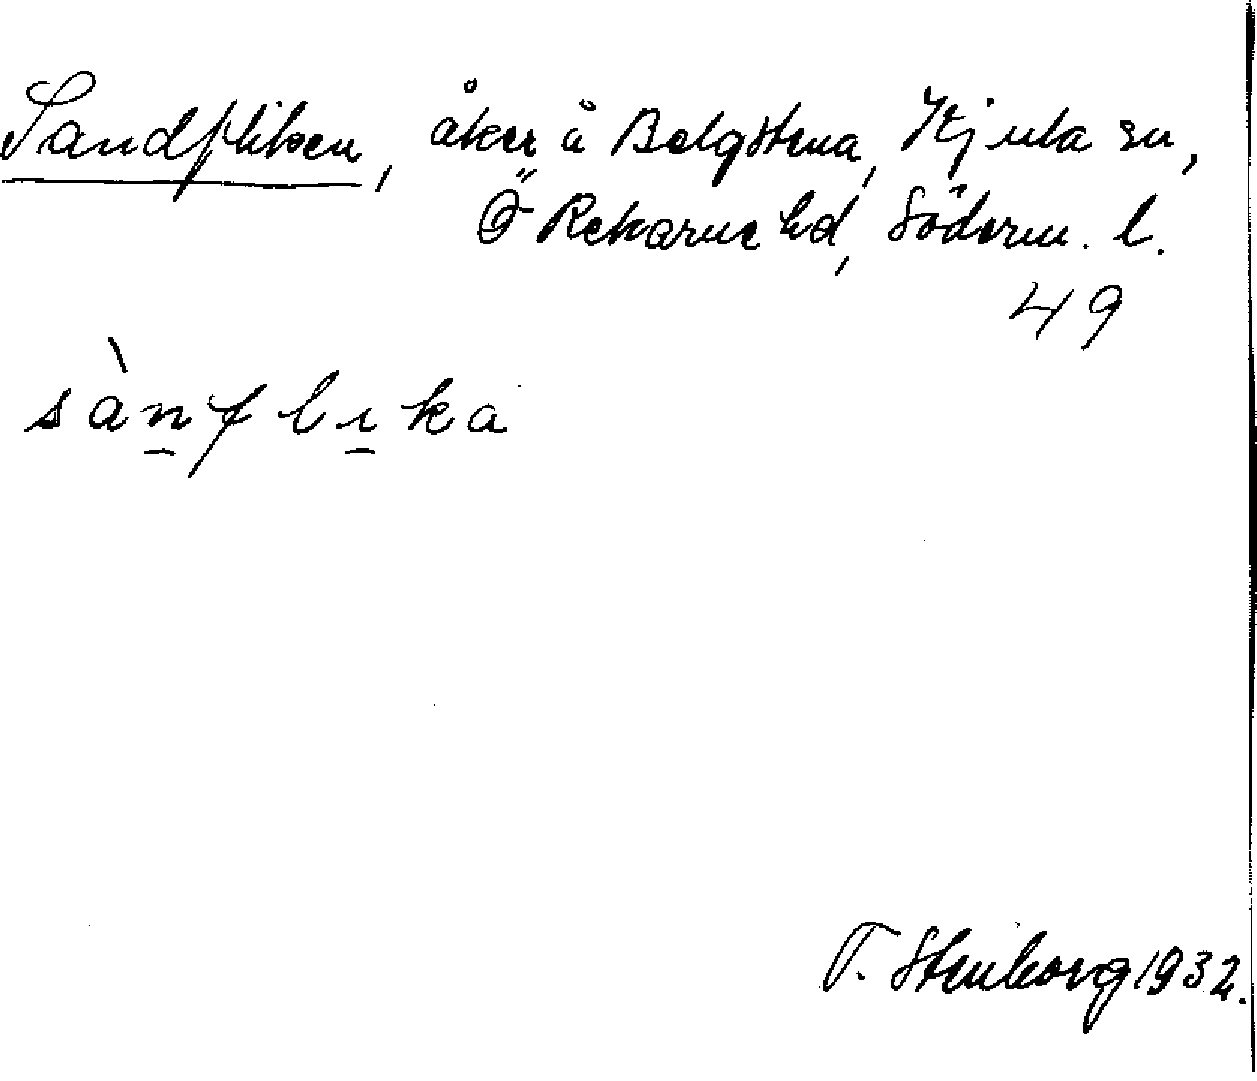 Sandfliken, åker å Balgstena, Kjula sn,
Ö Rekarne hd, Söderm. l.
49
sànflika
T. Stenborg 1932.